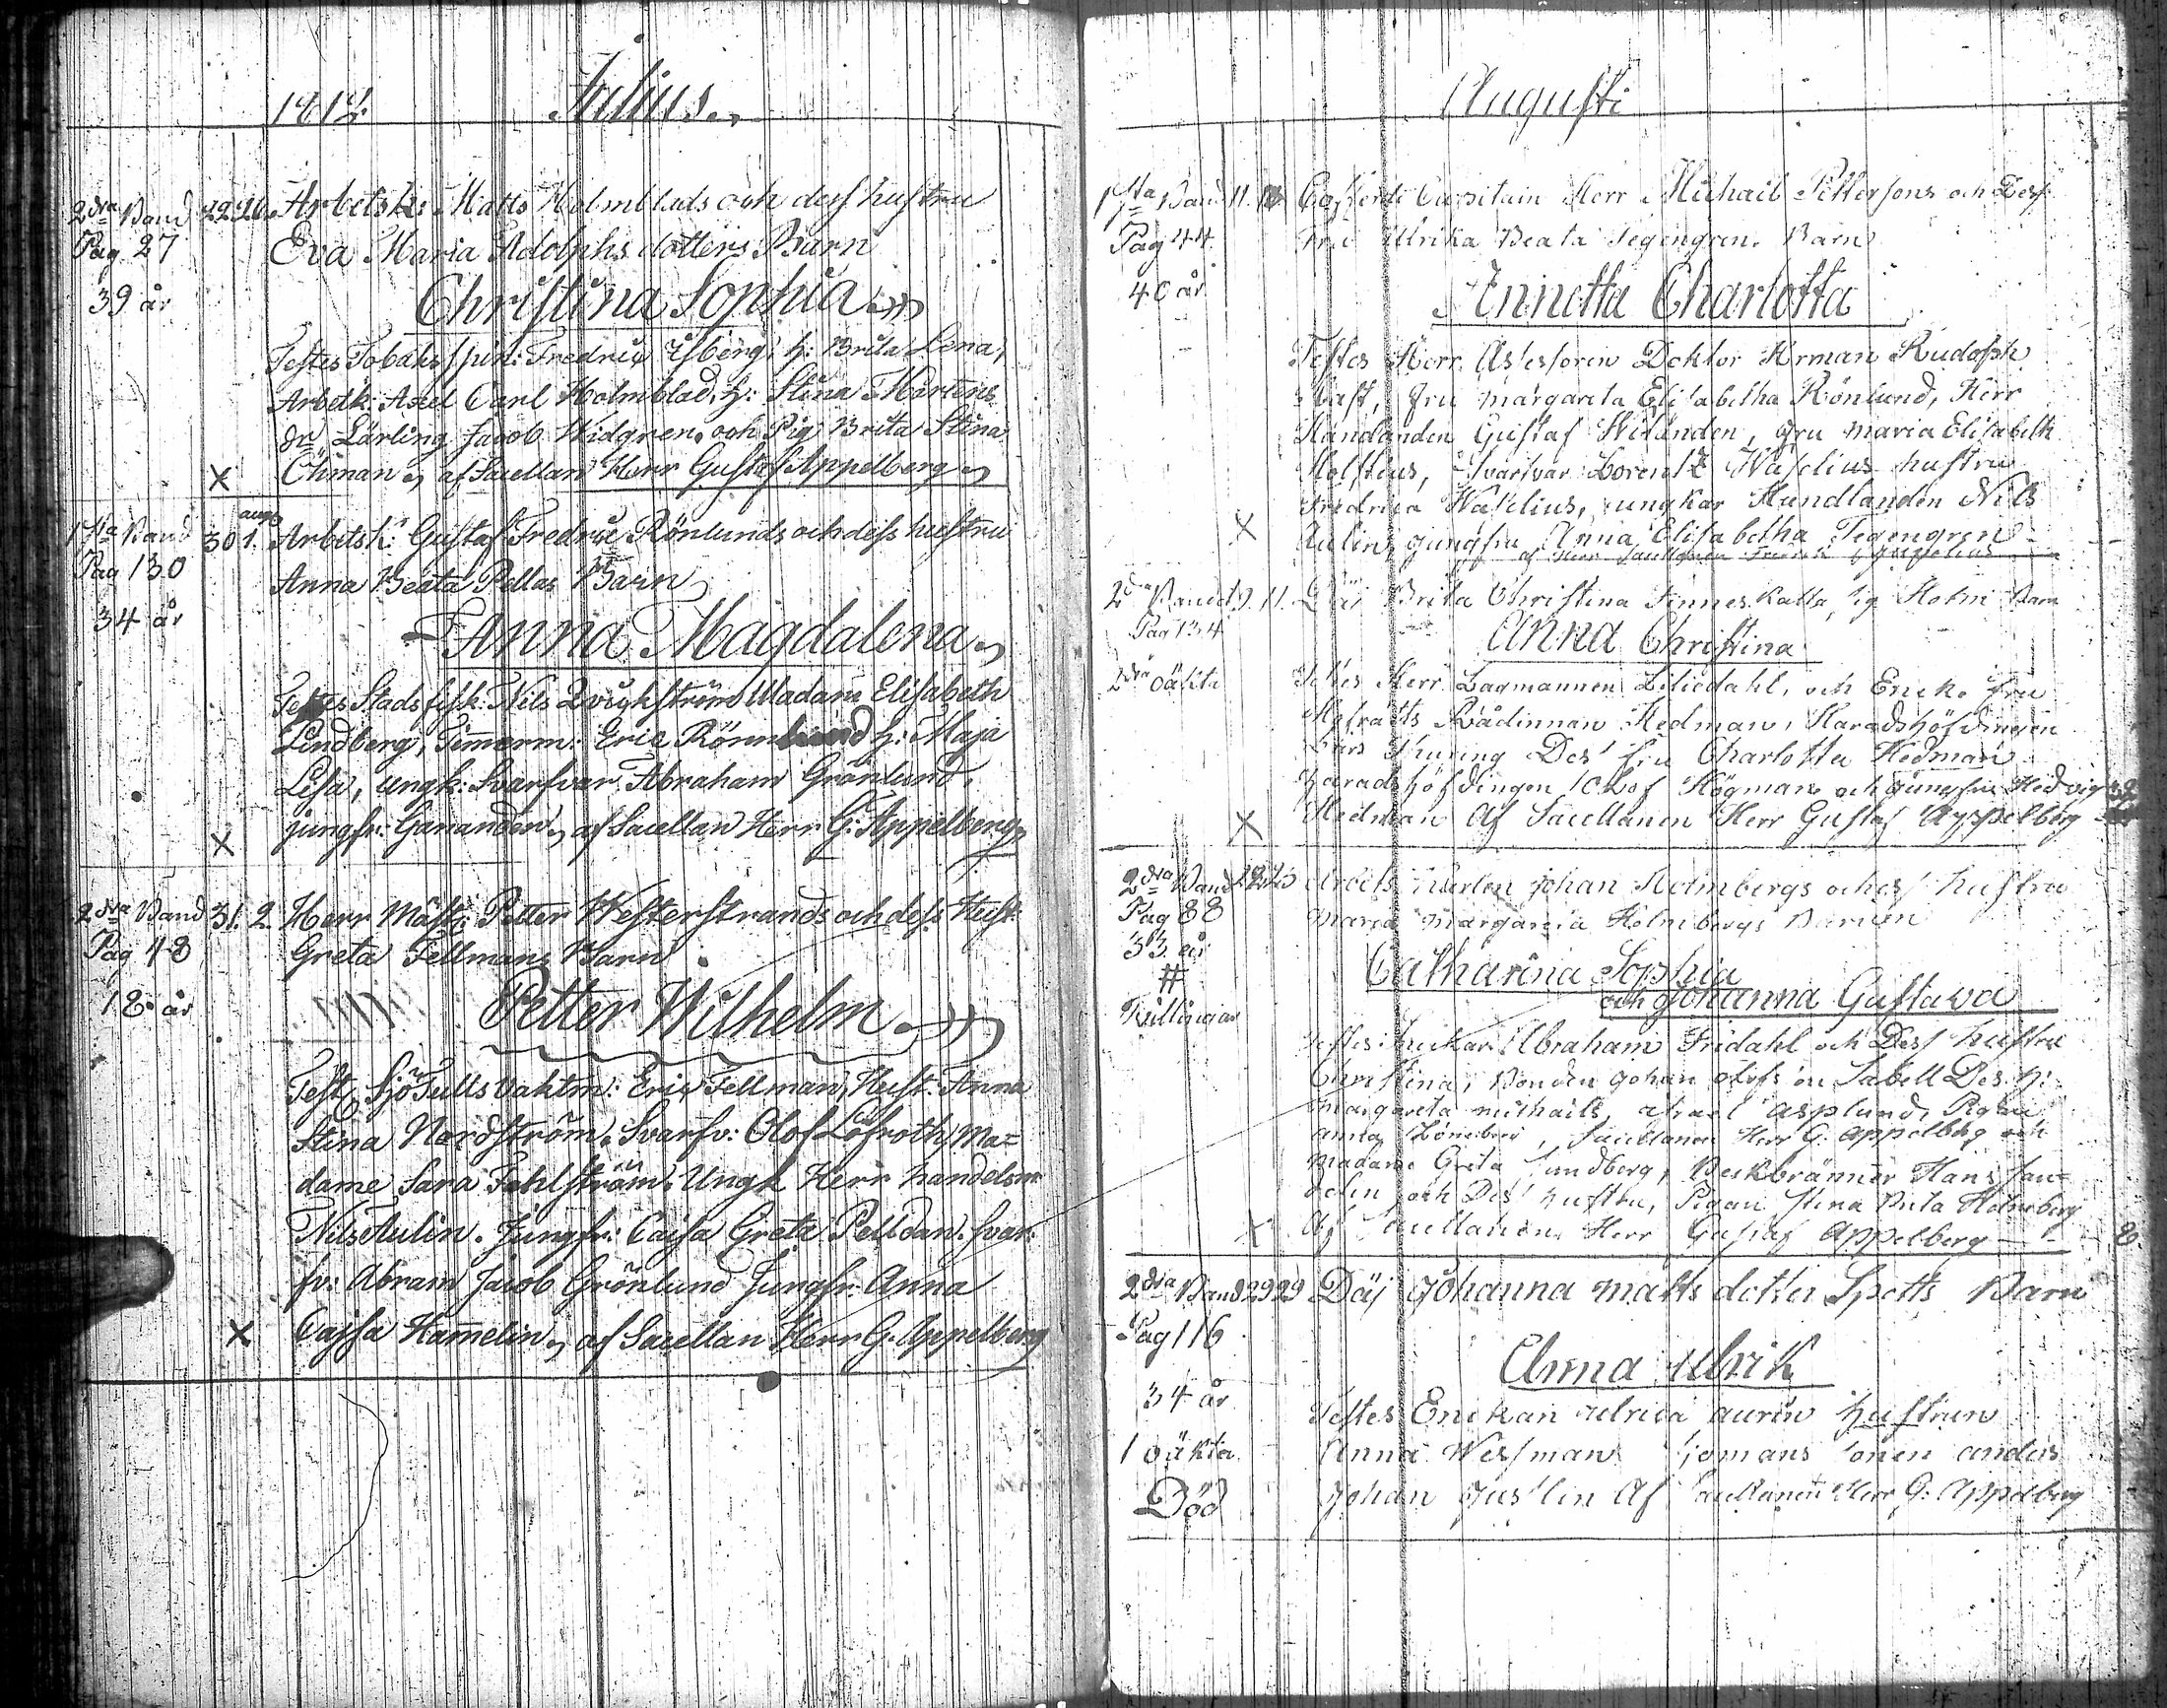 1812 Julius
2dra Band 22 26 Arbetsk: Matts Holmblads och dess hustru
Pag 27 Eva Maria Adolphs dotters Barn
39 år Christina Sophia
Testes Tobaks spin: Fredric h: Brita Lena,
Arbetk: Axel Carl Holmblad, h: Stina Mårtens
dr Lärling Jacob Widgren, och Pig Brita Stina
X Öhman af Sacellan Herr Gustaf Appelberg
aug
1sta Band 30 1. Arbetsk: Gustaf Fredric Rönlunds och dess hustru
Pag 130 Anna Beata Pellas Barn
34 år Anna Magdalena
Testes Stads fisk: Nils Madam Elisabeth
Lindberg, Timmerm: Eric Rönnlund h: Maja
Lisa, ungk: Svarfvar Abraham Grönlund,
X jungfr: Ganander, af Sacellan Herr G: Appelberg
2dra Band 31. 2. Herr Mäst: Petter Westerstrands och dess Hust:
Pag 48 Greta Fellmans Barn
18 år Petter Wilhelm
Test: Sjö Tulls Vaktm: Eric Fellman, Hust: Anna
Stina Nordström, Svarfv: Olof Löfroth, Ma=
dame Sara Fahlström, Ungk Herr handelsm
Nils Aulin. Jungfr: Caisa Greta Pelldan. Svar:
fv: Abram Jacob Grönlund Jungfr: Anna
X Cajsa Hamelin, af Sacellan Herr G. Appelberg
Augusti
1sta Band 11. Capitain Herr Michail Pettersons och Dess
Pag 44 Fru Ulrika Beata Tegengren Barn
40 år Annetta Charlotta
Testes Herr Assessoren Doktor Herman Rudolph
Fru Margareta Elisabetha Rönlund, Herr
Handlanden Gustaf fru Maria Elisabeth
Svarfvar Lorentz Waselius hustru
Fredrica Waselius, ungkar Handlanden Nils
X Aulin, jungfru Anna Elisabetha Tegengren
af Herr Sacellanen
2dra Band 9. 11. Brita Christina Finneskatta, Holm Barn
Pag 134 Anna Christina
2dra oäkta Testes Herr Lagmannen Liliedahl, och Encke fru
Hofrätts Rådinnan Hedman, Häradshöfdingen
Lars Thuring Des fru Charlotta Hedman
häradshöfdingen Högman och jungfru Hedvig
X Hedman Af Sacellanen Herr Gustaf Appelberg
2dra Band Arbets karlen Johan Holmbergs och hustru
Pag 88 Maria Margareta Holmbergs Barnen
33 år Catharina Sophia
# och Johanna Gustava
Tvillingar
Testes Abraham Fridahl och Dess hustru
Christina, Bonden Johan Olofs on Sabell Des h:
Margareta Michails, asplund, Pigan
Anna Sacellanen Herr G. Appelberg och
Madame Greta Sundberg, Beckbränner Hans
och Des hustru, Pigan Stina Brita Holmberg
X Af Sacellanen Herr Gustaf Appelberg 8
2dra Band 29 29 Dej Johanna matts dotter Spetts Barn
Pag 116
Anna Ulrik
34 år Testes Enckan ulrica aurin hustrun
1 oäkta Anna Wessman anders
Död Johan Af Sacellanen Herr G: Appelberg